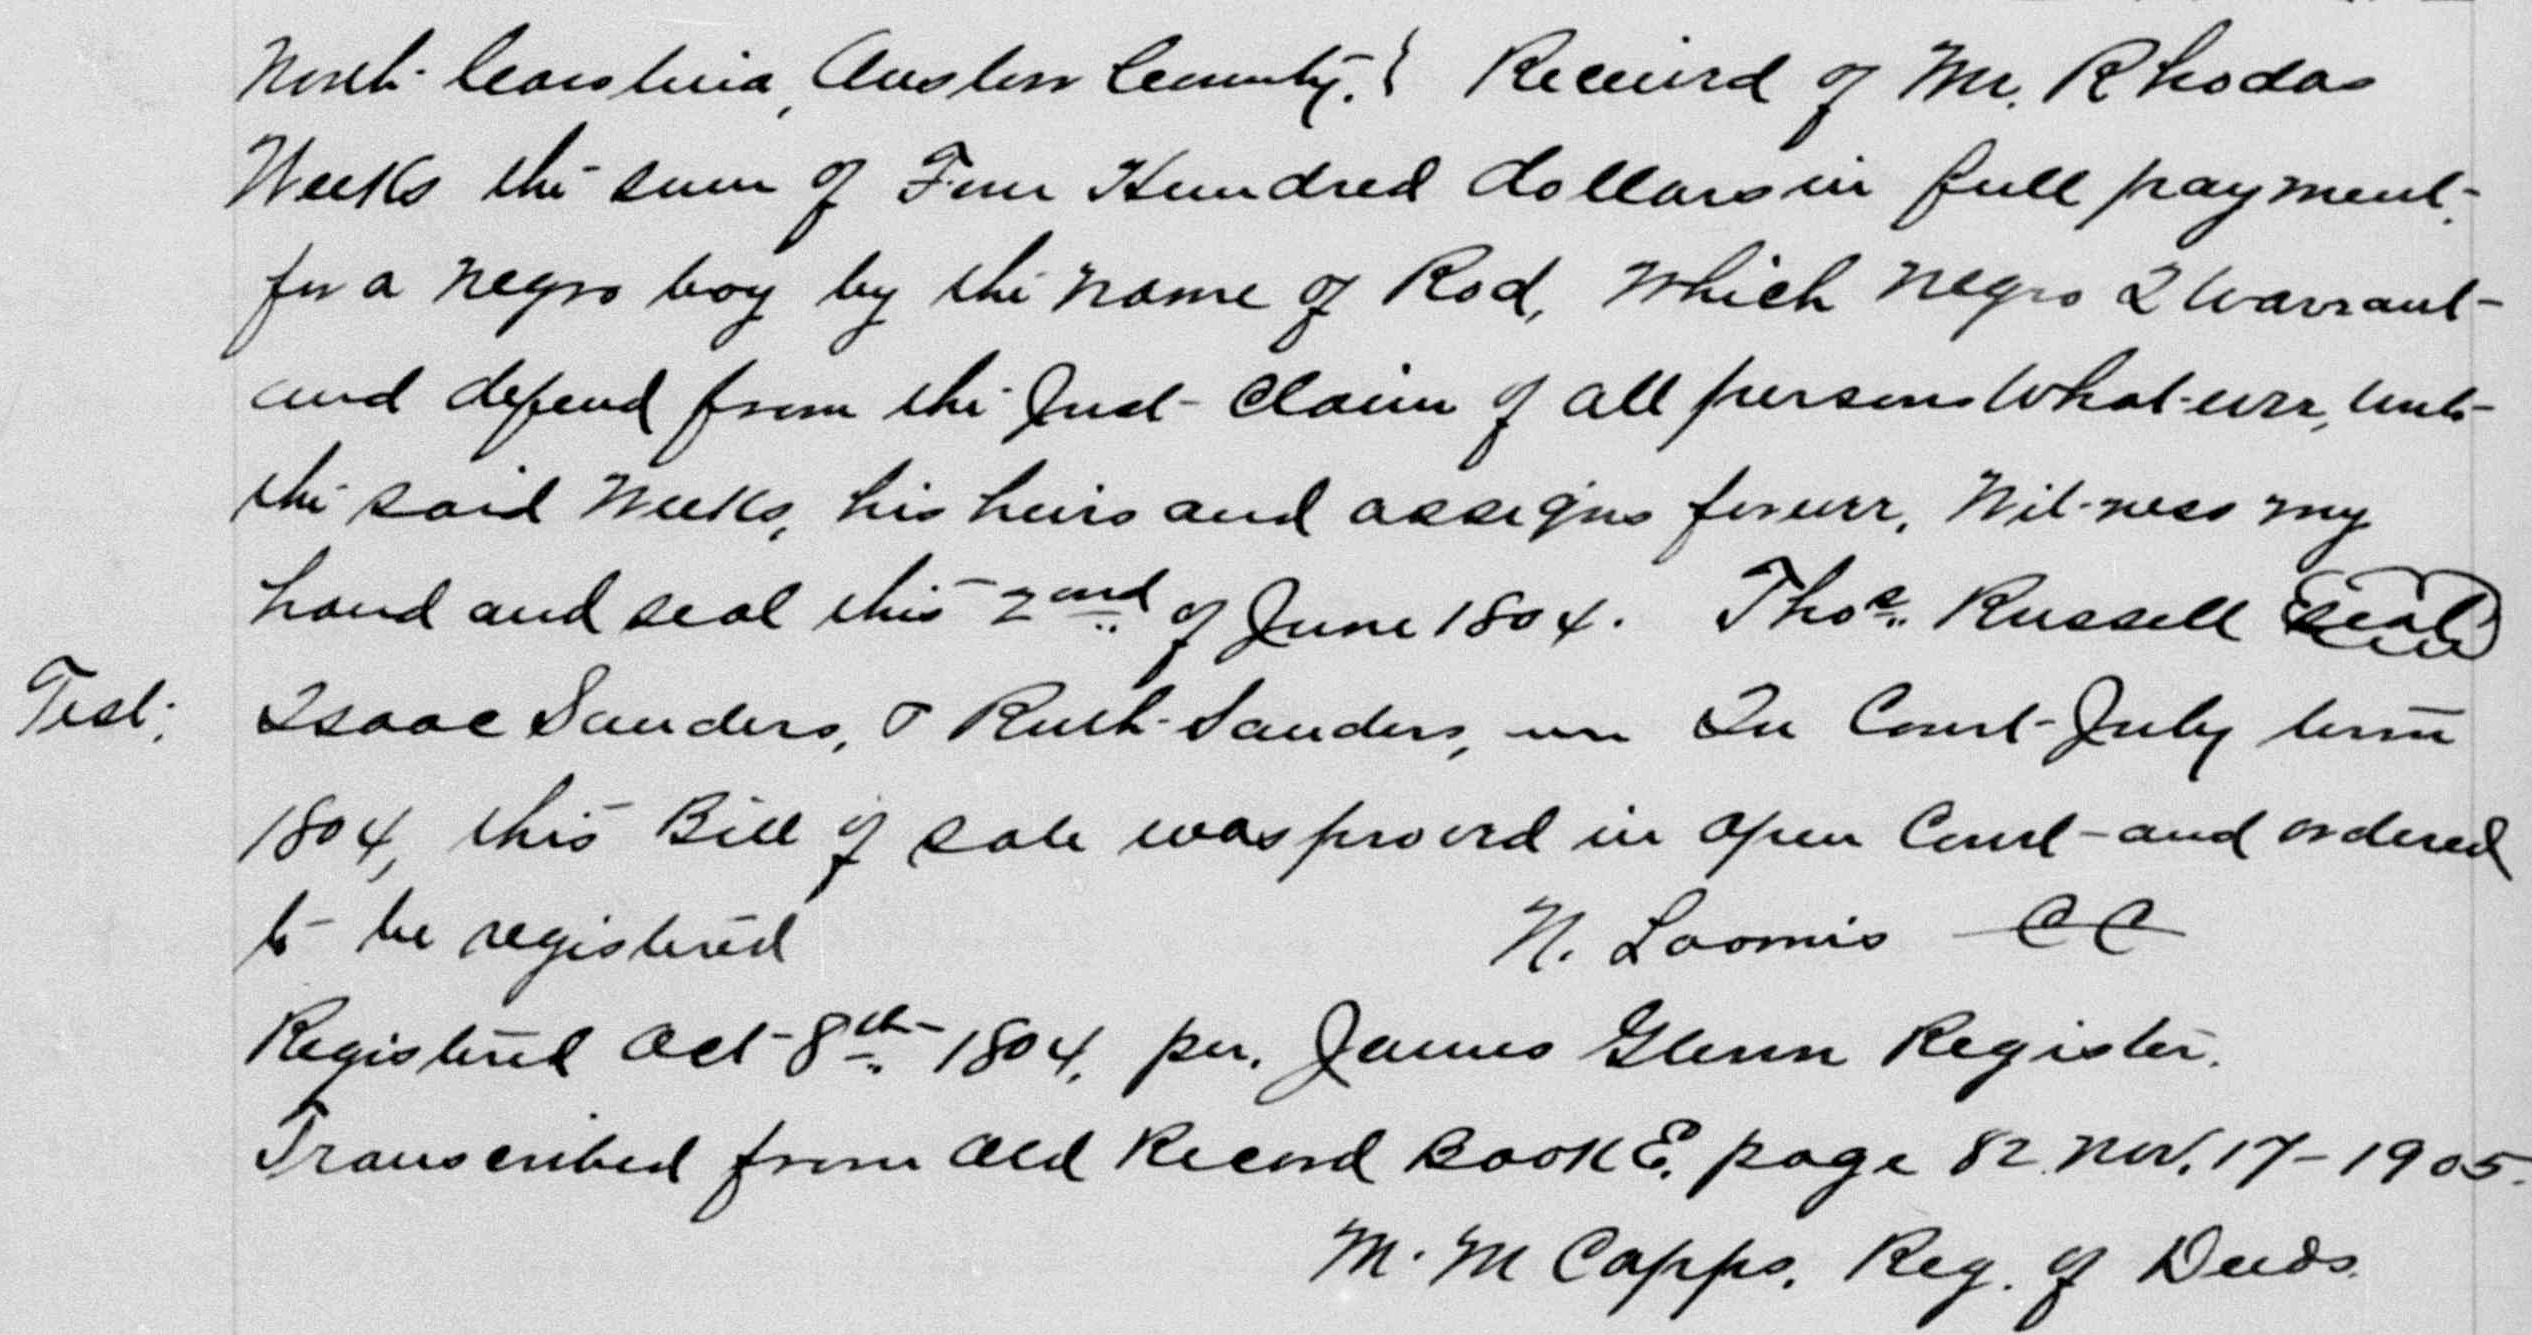 North Carolina, Onslow County.} Received of Mr. Rhodas
Weeks the sum of Four Hundred dollars in full payment
for a negro boy by the name of Rod, which negro I warrant
and defend from the Just claim of all persons whatever, unto
the said Weeks, his heirs and assigns forever, Witness my
hand and seal this 2nd of June 1804. Thos. Russell Seal
Test: Isaac Sanders, Ruth Sanders, In Court July term
1804, this Bill of sale was proved in open Court and ordered
to be registered N. Loomis CC
Registered Oct 8th 1804, per. James Glenn Register.
Transcribed from Old Record Book E, page 82 Nov. 17-1905.
M. M Capps, Reg. of Deeds.